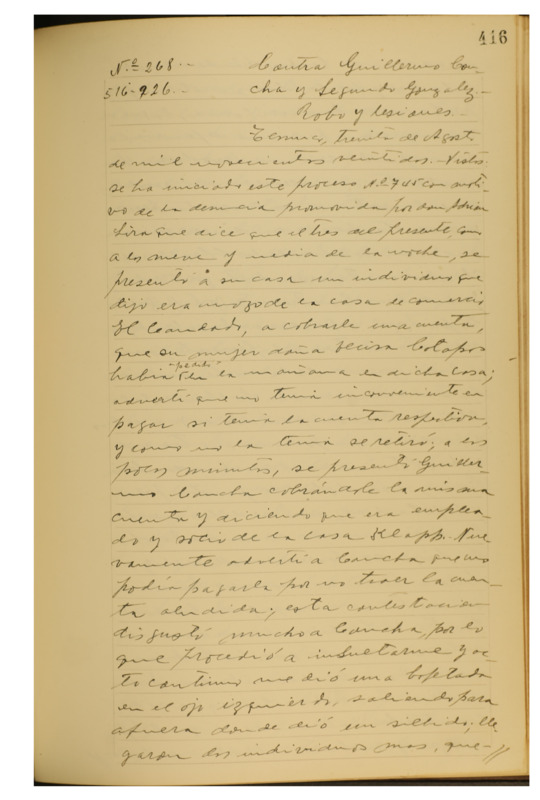 416
N.º 268.-
516-926.-
Contra Guillermo Con-
cha y Segundo Gonzalez.-
Robo y lesiones.-
Temuco, treinta de Agosto
de mil novecientos veintidos.- Vistos:
se ha iniciado este proceso N.º con moti-
vo de la denuncia promovida por don Adrian
Lira que dice que el tres del presente, como
a las nueve y media de la noche, se
presentó a su casa un individuo que
dijo era mozo de la casa de comercio
El Candado, a cobrarle una cuenta,
que su mujer doña Botapos
habia pedido en la mañana en dicha casa;
advertí que no tenia inconveniente en
pagar si tenia la cuenta respectiva,
y como no la tenia se retiró; a los
pocos minutos, se presentó Guiller-
mo Concha cobrándole la misma
cuenta y diciendo que era emplea-
do y socio de la casa Klapp. Nue
vamente advertí a Concha que no
podia pagarla por no traer la cuen-
ta aludida; esta contestacion
disgustó mucho a Concha, por lo
que procedió a insultarme y ac-
to continuo me dió una bofetada
en el ojo izquierdo, saliendo para
afuera donde dió un silbido; lle
garon dos individuos mas, que-